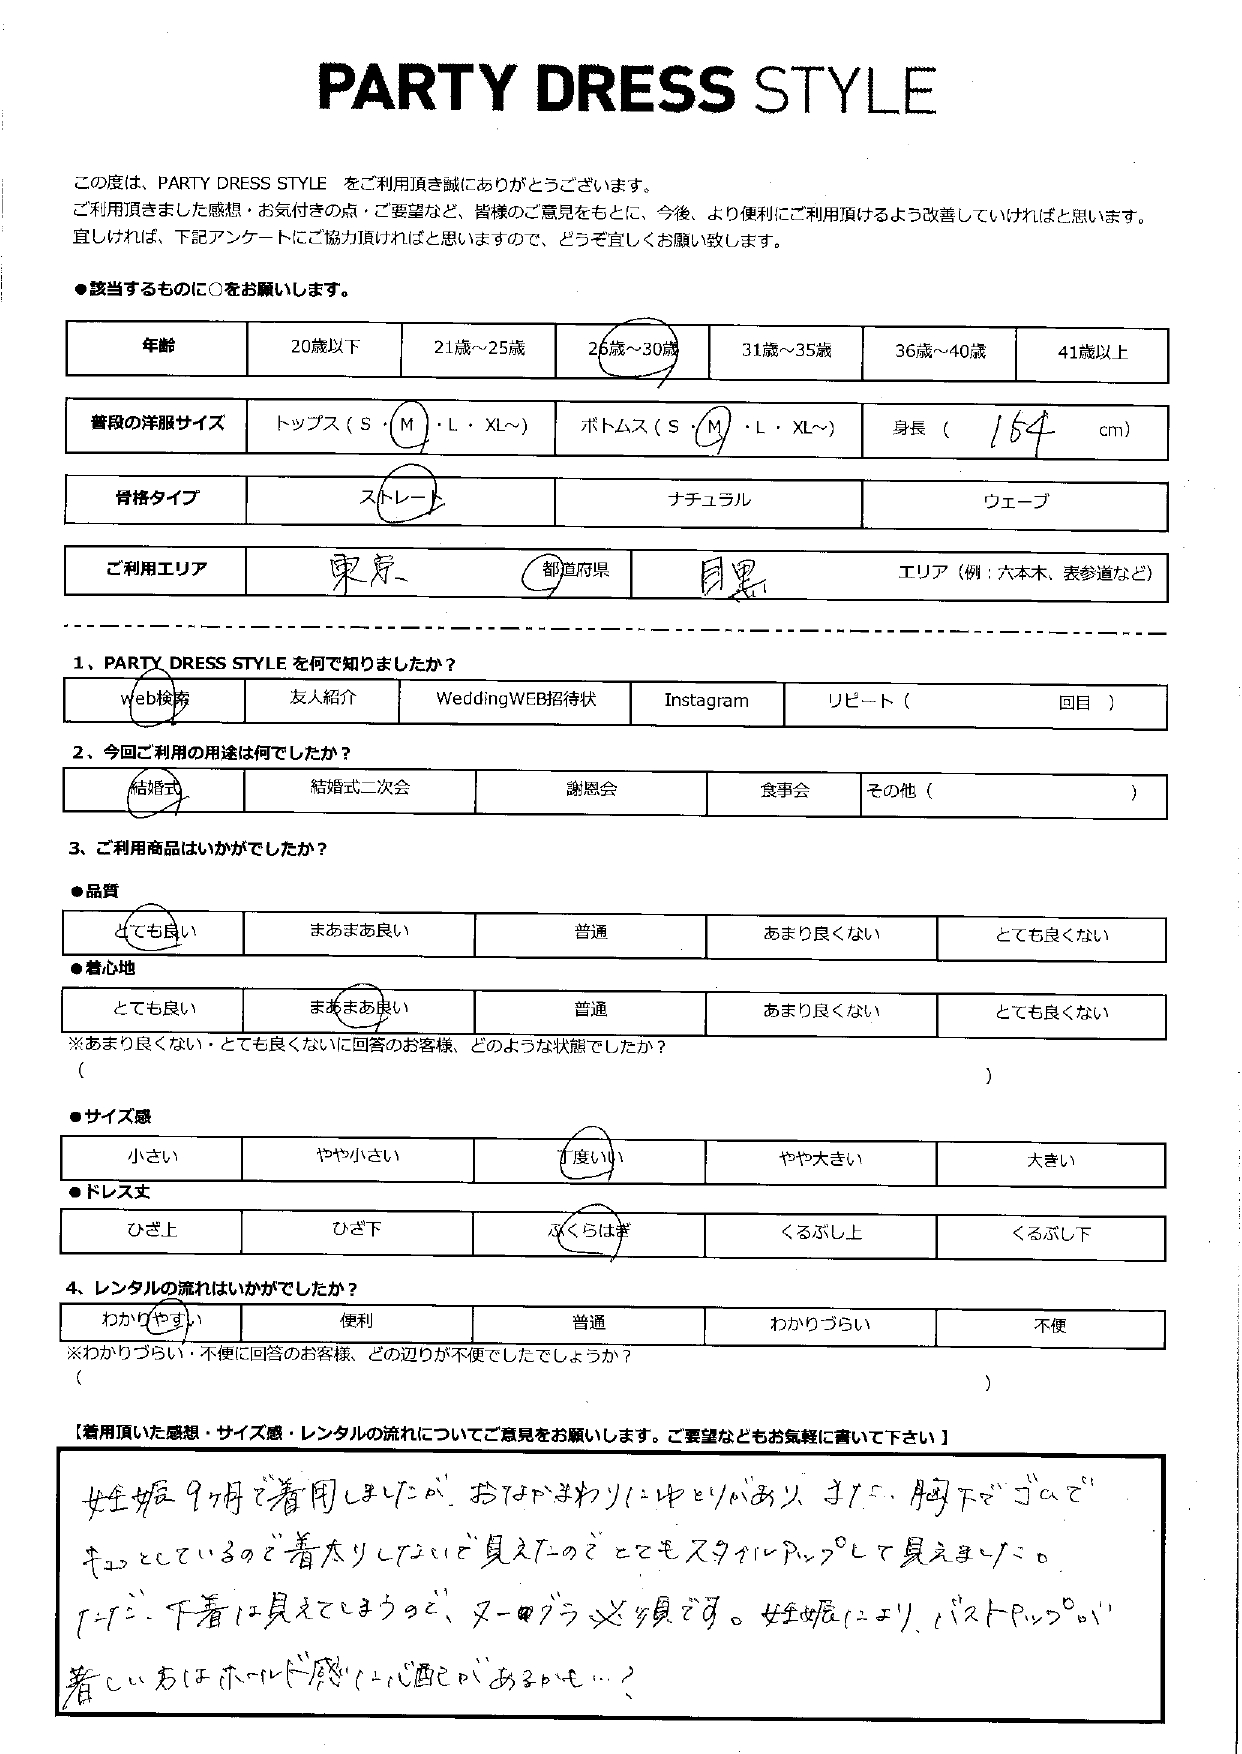 PARTY DRESS STYLE
この度は、PARTY DRESS STYLE をご利用頂き誠にありがとうございます。
ご利用頂きました感想・お気付きの点・ご要望など、皆様のご意見をもとに、今後、より便利にご利用頂けるよう改善していければと思います。
宜しければ、下記アンケートにご協力頂ければと思いますので、どうぞ宜しくお願い致します。
●該当するものに○をお願いします。
年齢 20歳以下 21歳～25歳 26歳～30歳 31歳～35歳 36歳～40歳 41歳以上
普段の洋服サイズ トップス ( S ・ M ・ L ・ XL～) ボトムス ( S ・ M ・ L ・ XL～) 身長 ( 164 cm)
骨格タイプ ストレート ナチュラル ウェーブ
ご利用エリア 東京 都道府県 目黒 エリア（例：六本木、表参道など）
1、PARTY DRESS STYLE を何で知りましたか？
web検索 友人紹介 WeddingWEB招待状 Instagram リピート（ 回目 ）
2、今回ご利用の用途は何でしたか？
結婚式 結婚式二次会 謝恩会 食事会 その他（ ）
3、ご利用商品はいかがでしたか？
●品質
とても良い まあまあ良い 普通 あまり良くない とても良くない
●着心地
とても良い まあまあ良い 普通 あまり良くない とても良くない
※あまり良くない・とても良くないに回答のお客様、どのような状態でしたか？
( )
●サイズ感
小さい やや小さい 丁度いい やや大きい 大きい
●ドレス丈
ひざ上 ひざ下 ふくらはぎ くるぶし上 くるぶし下
4、レンタルの流れはいかがでしたか？
わかりやすい 便利 普通 わかりづらい 不便
※わかりづらい・不便に回答のお客様、どの辺りが不便でしたでしょうか？
( )
【着用頂いた感想・サイズ感・レンタルの流れについてご意見をお願いします。ご要望などもお気軽に書いて下さい】
妊娠9ヶ月で着用しましたが、おなかまわりにゆとりがあり、また、胸下でゴムで
キュッとしているので着太りしないで見えたのでとてもスタイルアップして見えました。
ただ、下着は見えてしまうので、ヌーブラ必須です。妊娠により、バストアップが
著しい方はホールド感に心配があるかも…？